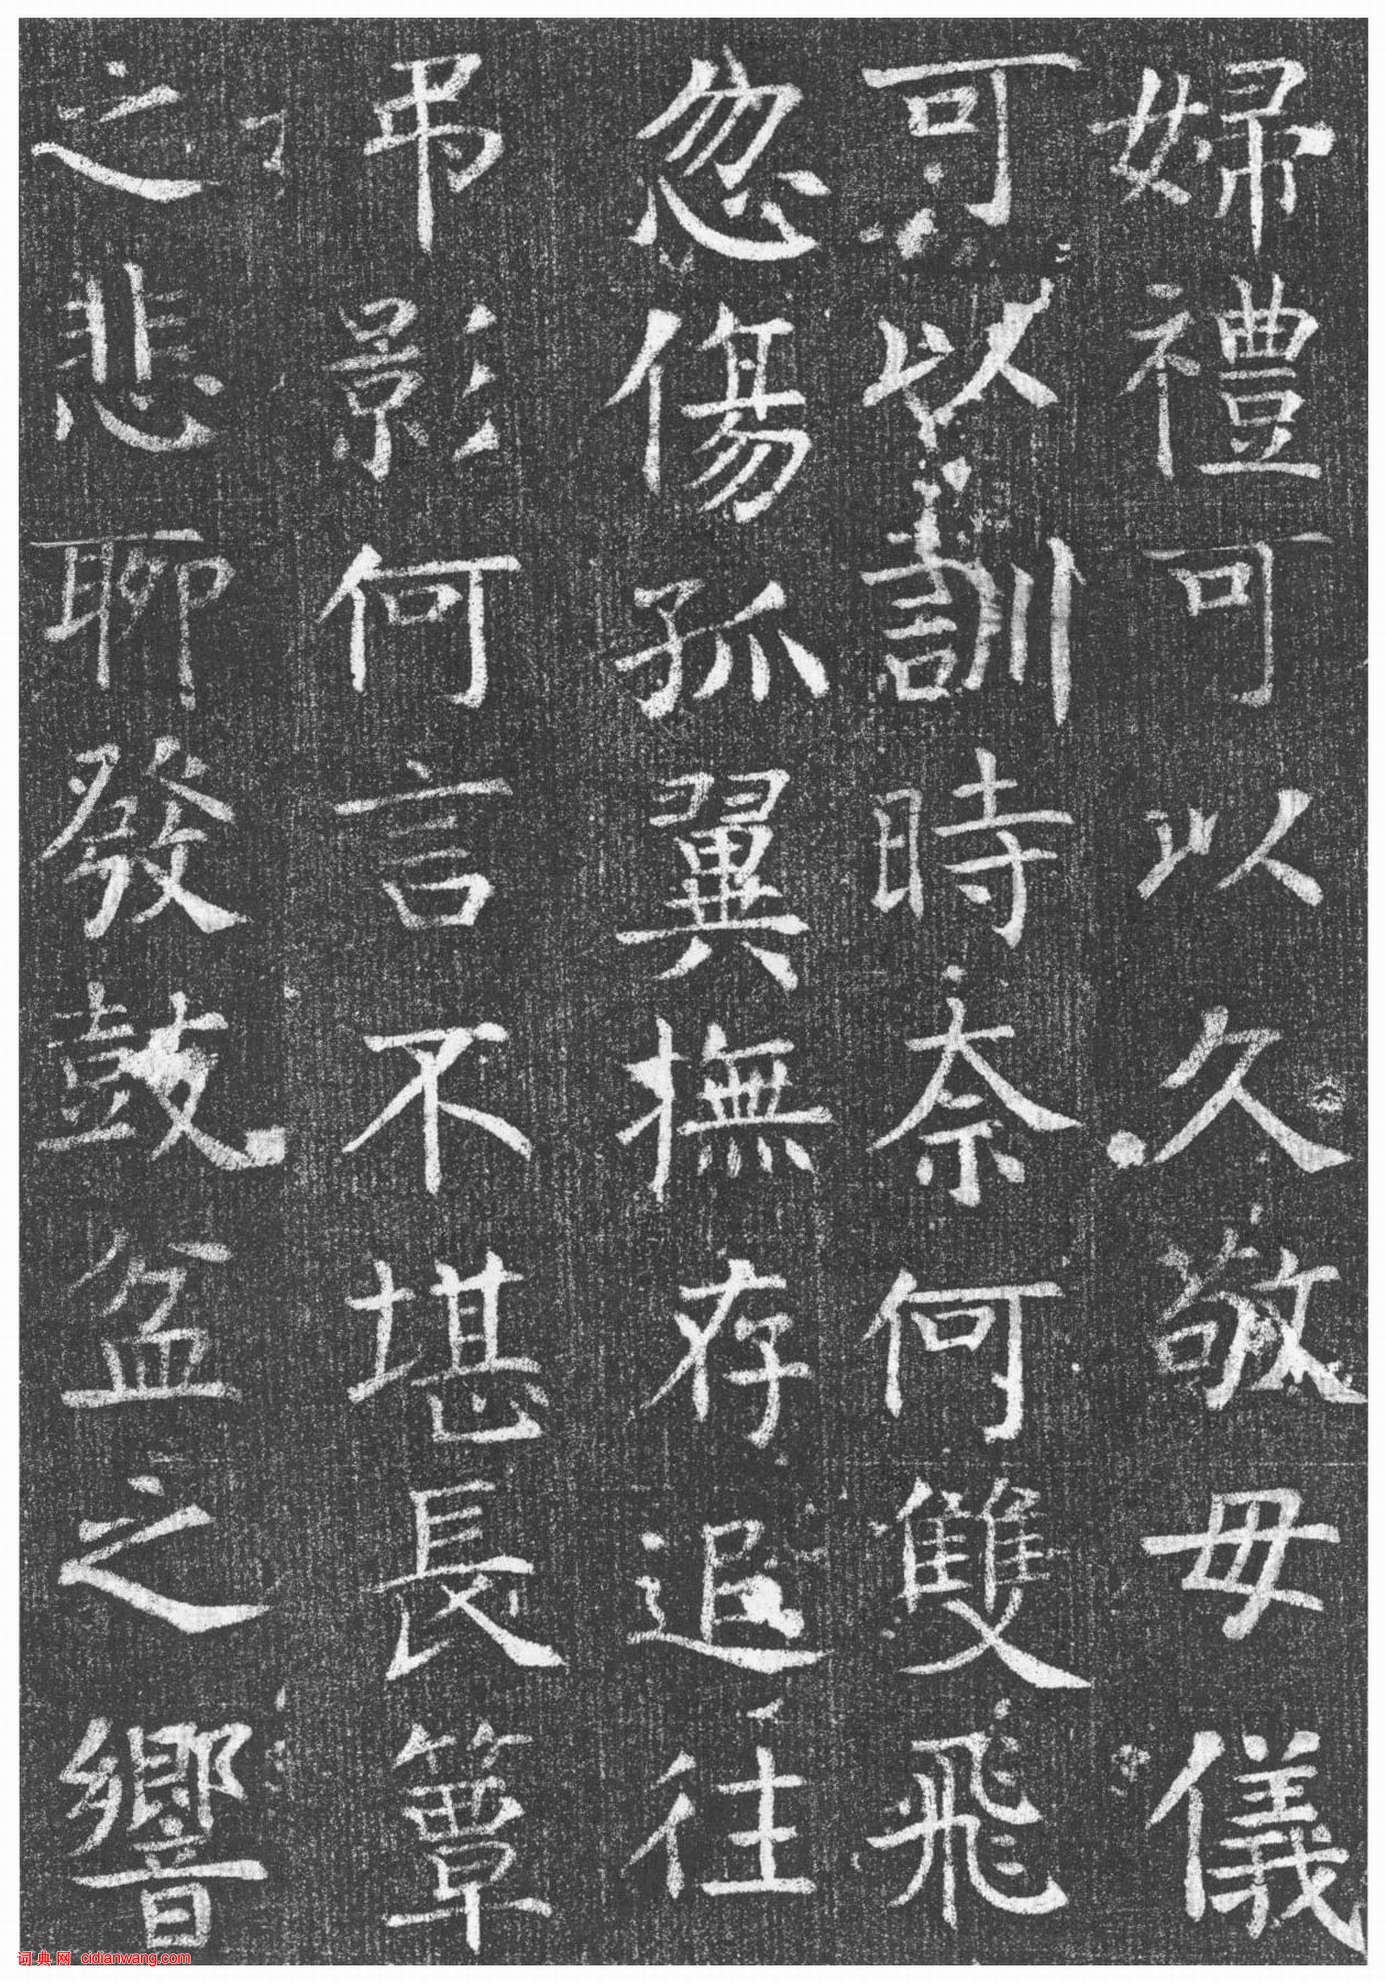 婦禮可以久敬毋儀
可以訓時奈何雙飛
忽傷孤翼撫存追往
弔影何言不堪長簟
之悲聊發鼓盆之響
词典网 cidianwang.com